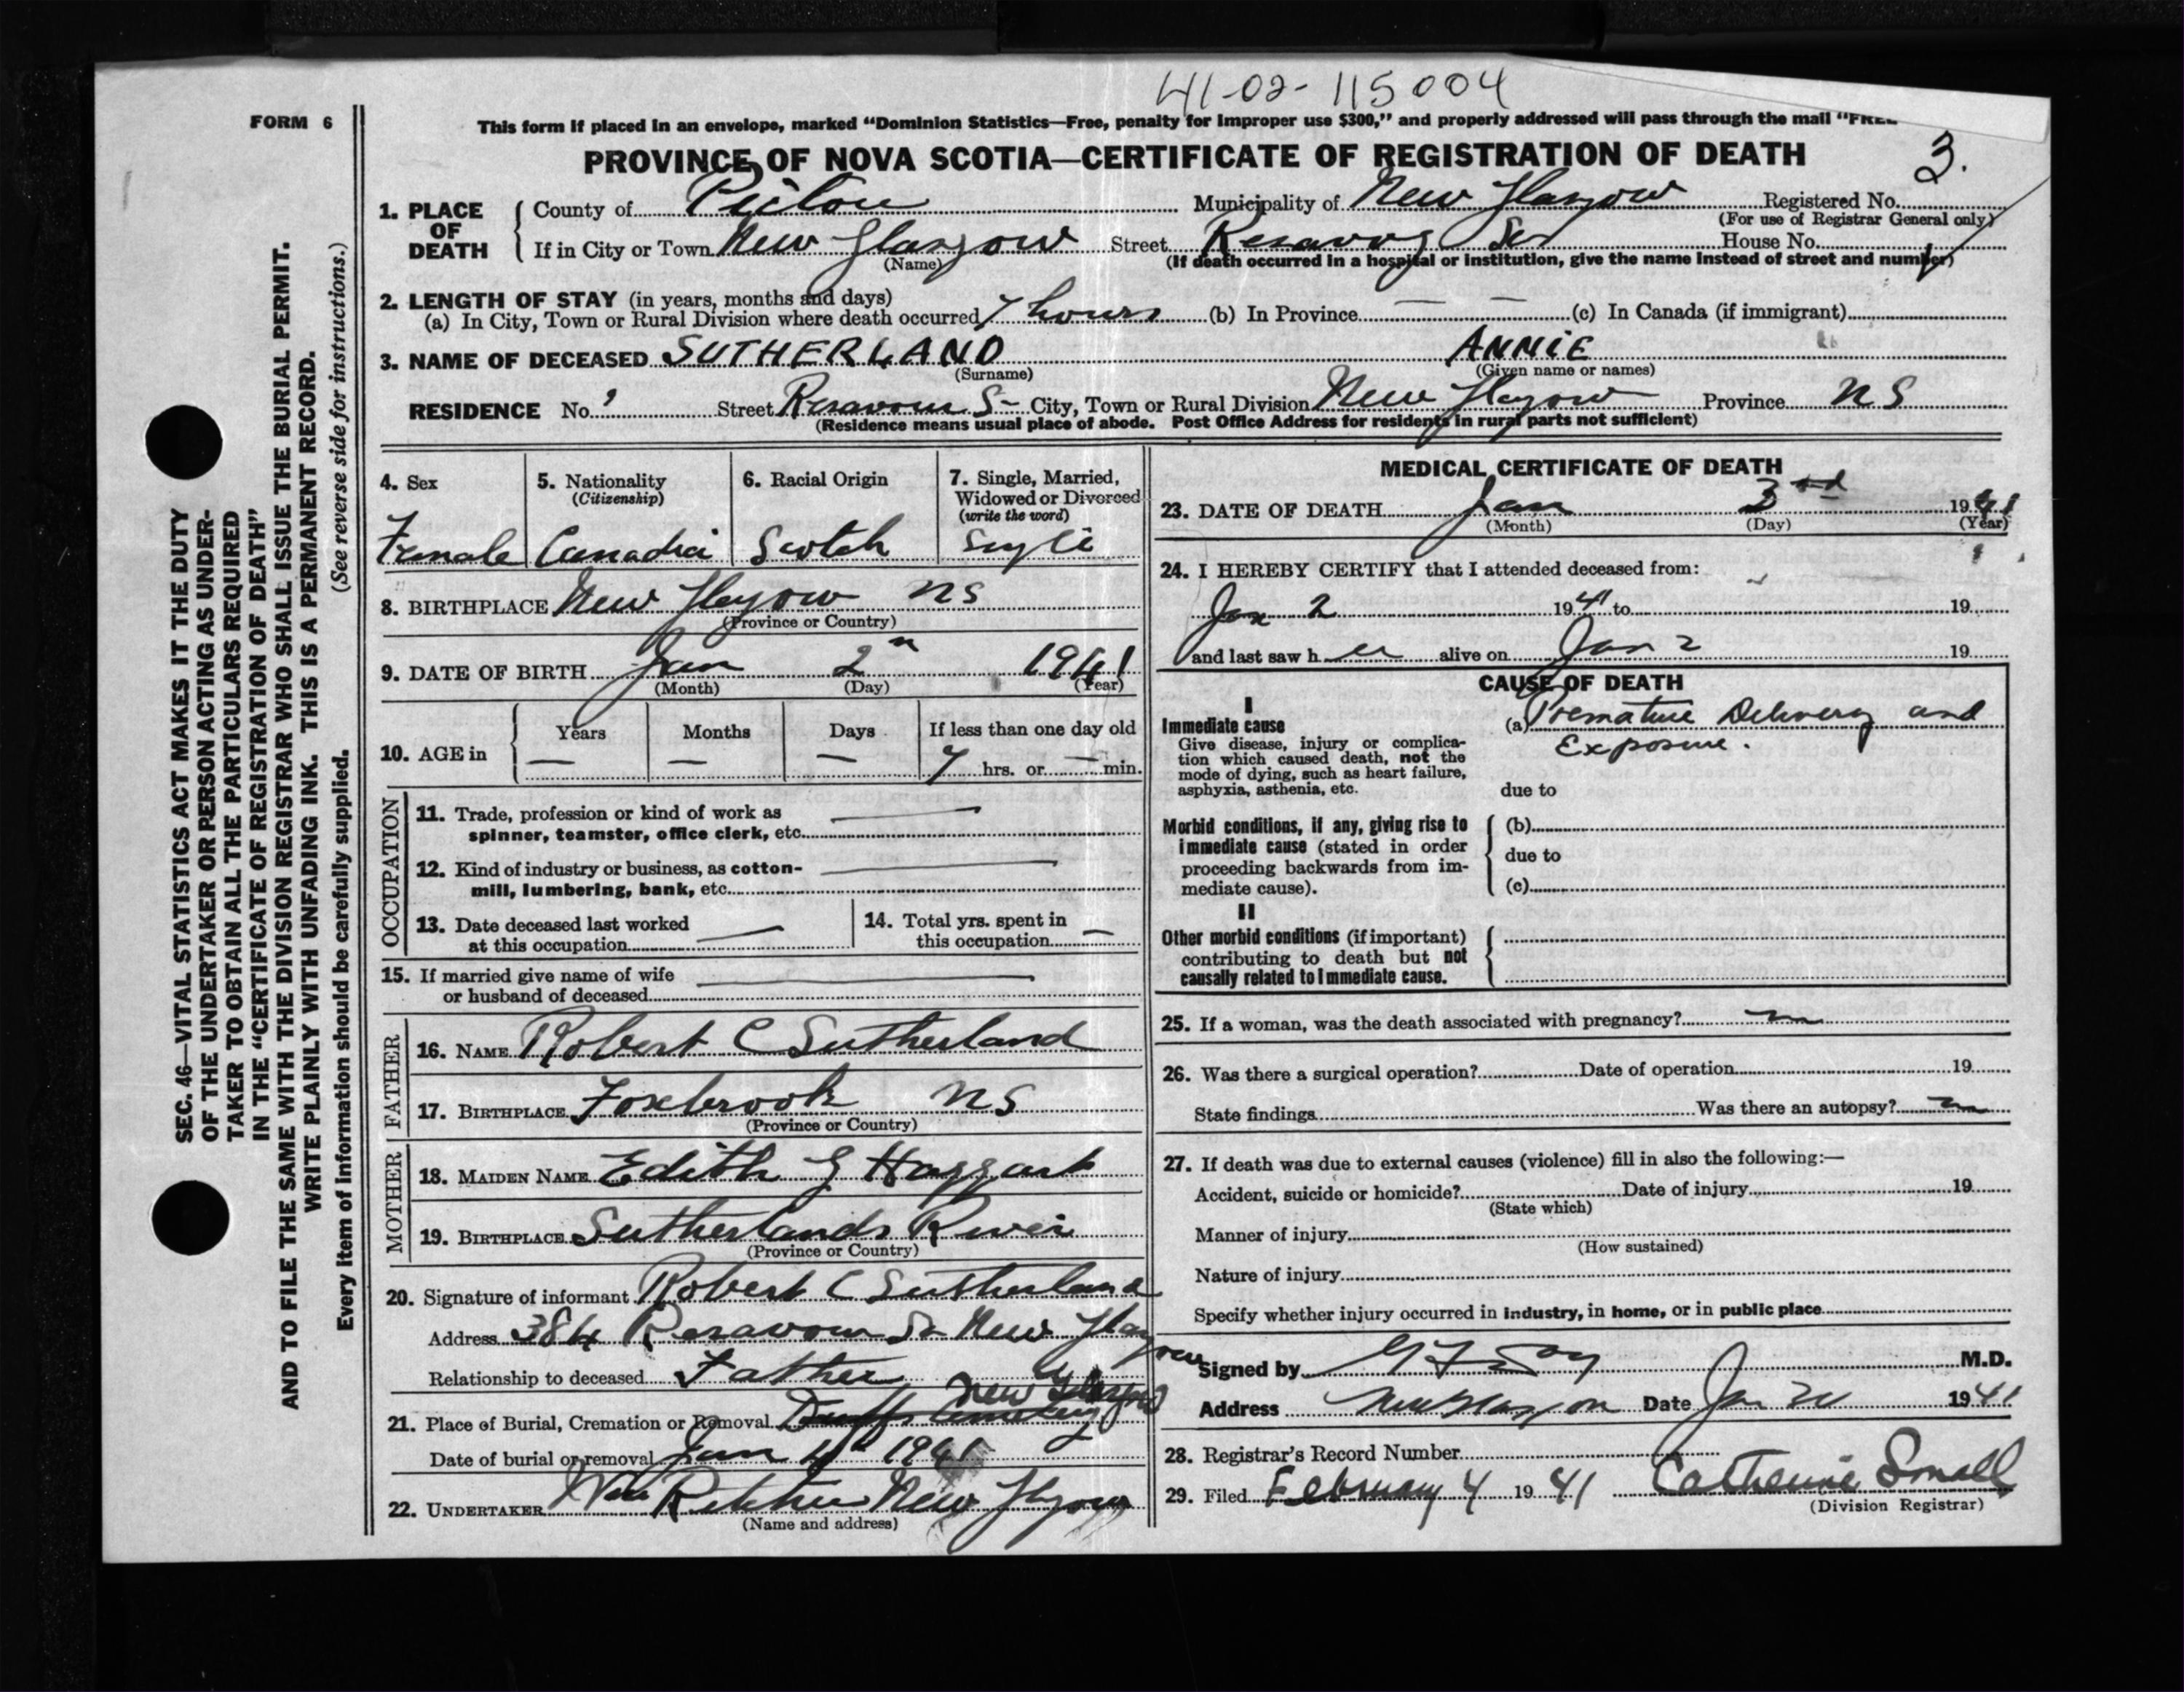 41-02-115004
FORM 6
This form if placed in an envelope, marked "Dominion Statistics—Free, penalty for improper use $300," and properly addressed will pass through the mail "FREE
PROVINCE OF NOVA SCOTIA—CERTIFICATE OF REGISTRATION OF DEATH
3.
1. PLACE OF DEATH
County of Pictou Municipality of New Glasgow Registered No.
(For use of Registrar General only)
If in City or Town New Glasgow Street House No.
(Name)
(If death occurred in a hospital or institution, give the name instead of street and number)
2. LENGTH OF STAY (in years, months and days)
(a) In City, Town or Rural Division where death occurred 7 hours (b) In Province — — (c) In Canada (if immigrant)
3. NAME OF DECEASED SUTHERLAND ANNIE
(Surname) (Given name or names)
RESIDENCE No. Street City, Town or Rural Division New Glasgow Province NS
(Residence means usual place of abode. Post Office Address for residents in rural parts not sufficient)
4. Sex
Female
5. Nationality
(Citizenship)
6. Racial Origin
Scotch
7. Single, Married,
Widowed or Divorced
(write the word)
8. BIRTHPLACE New Glasgow NS
(Province or Country)
9. DATE OF BIRTH Jan 2 1941
(Month) (Day) (Year)
10. AGE in
Years Months Days If less than one day old
— — — 7 hrs. or — min.
OCCUPATION
11. Trade, profession or kind of work as
spinner, teamster, office clerk, etc. —
12. Kind of industry or business, as cotton-
mill, lumbering, bank, etc. —
13. Date deceased last worked
at this occupation —
14. Total yrs. spent in
this occupation —
15. If married give name of wife
or husband of deceased —
FATHER
16. NAME Robert C Sutherland
17. BIRTHPLACE Foxbrook NS
(Province or Country)
MOTHER
18. MAIDEN NAME Edith G Haggart
19. BIRTHPLACE Sutherlands River
(Province or Country)
20. Signature of informant Robert C Sutherland
Address 384 New Glasgow
Relationship to deceased Father
21. Place of Burial, Cremation or Removal Duffs Cemetery New Glasgow
Date of burial or removal Jan 4th 1941
22. UNDERTAKER New Glasgow
(Name and address)
MEDICAL CERTIFICATE OF DEATH
23. DATE OF DEATH Jan 3rd 1941
(Month) (Day) (Year)
24. I HEREBY CERTIFY that I attended deceased from:
Jan 2 1941 to 19
and last saw her alive on Jan 2 19
CAUSE OF DEATH
I
Immediate cause
Give disease, injury or complica-
tion which caused death, not the
mode of dying, such as heart failure,
asphyxia, asthenia, etc.
(a) Premature Delivery and
Exposure.
due to
Morbid conditions, if any, giving rise to
immediate cause (stated in order
proceeding backwards from im-
mediate cause).
(b)
due to
(c)
II
Other morbid conditions (if important)
contributing to death but not
causally related to immediate cause.
25. If a woman, was the death associated with pregnancy? no
26. Was there a surgical operation? Date of operation 19
State findings Was there an autopsy? no
27. If death was due to external causes (violence) fill in also the following:—
Accident, suicide or homicide? Date of injury 19
(State which)
Manner of injury
(How sustained)
Nature of injury
Specify whether injury occurred in industry, in home, or in public place
Signed by M.D.
Address New Glasgow Date Jan 1941
28. Registrar's Record Number
29. Filed February 4 1941 Catherine Small
(Division Registrar)
SEC. 46—VITAL STATISTICS ACT MAKES IT THE DUTY
OF THE UNDERTAKER OR PERSON ACTING AS UNDER-
TAKER TO OBTAIN ALL THE PARTICULARS REQUIRED
IN THE "CERTIFICATE OF REGISTRATION OF DEATH"
AND TO FILE THE SAME WITH THE DIVISION REGISTRAR WHO SHALL ISSUE THE BURIAL PERMIT.
WRITE PLAINLY WITH UNFADING INK. THIS IS A PERMANENT RECORD.
Every item of information should be carefully supplied. (See reverse side for instructions.)